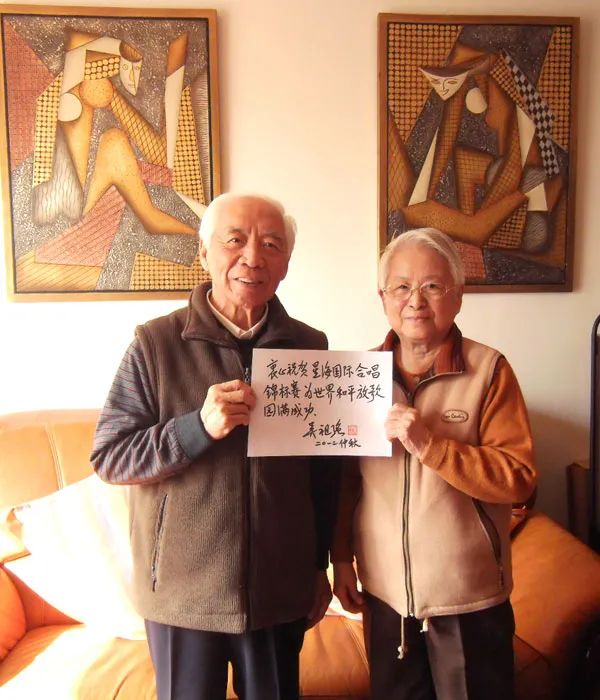 衷心祝贺星海国际合唱
锦标赛为世界和平放歌
圆满成功.
吴祖强
二〇一二仲秋